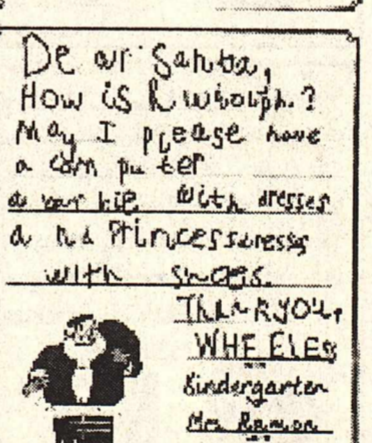 Dear Santa,
How is Rudolph?
May I please have
a com pu ter
a bar bie with dresses
a nd Princess dresses
with shoes.
THANK YOU,
Kindergarten
Mrs. Ramon